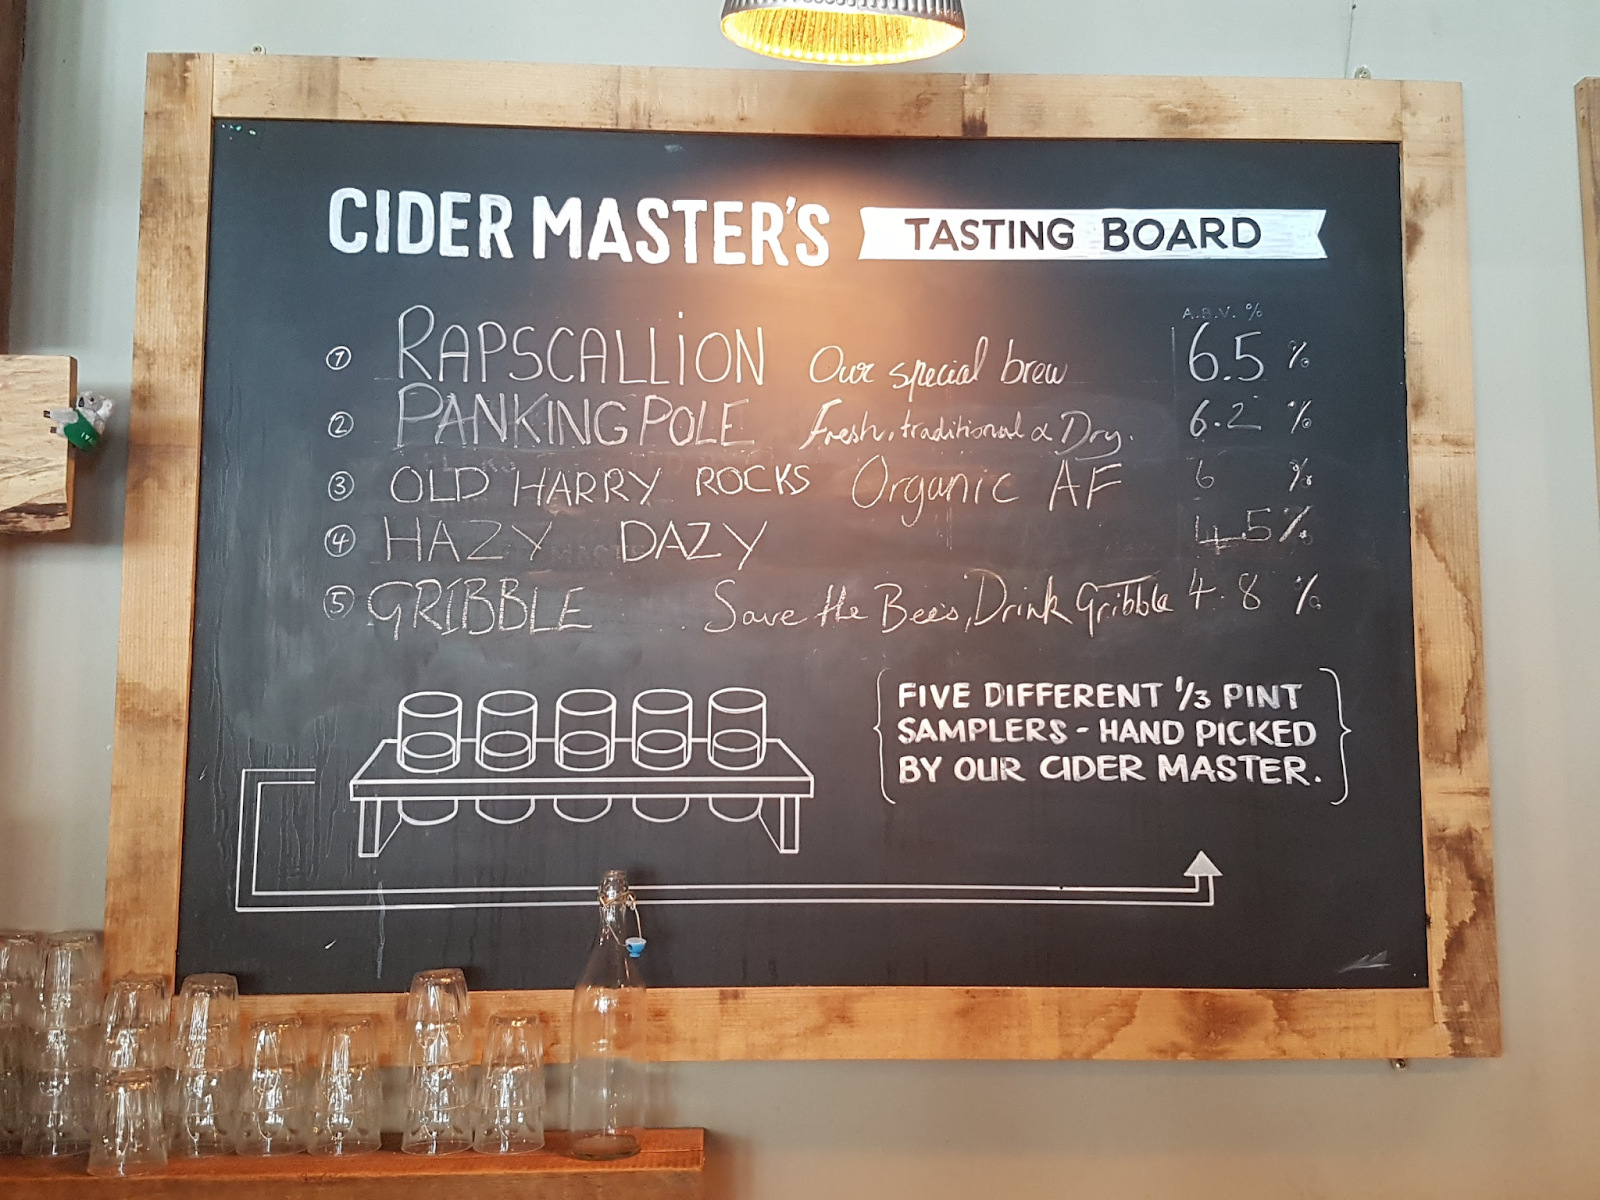 CIDER MASTER'S TASTING BOARD
A.B.V. %
1 RAPSCALLION Our special brew 6.5 %
2 PANKINGPOLE Fresh, traditional & Dry. 6.2 %
3 OLD HARRY ROCKS Organic AF 6 %
4 HAZY DAZY 4.5%
5 GRIBBLE Save the Bees, Drink Gribble 4.8 %
FIVE DIFFERENT 1/3 PINT
SAMPLERS - HAND PICKED
BY OUR CIDER MASTER.